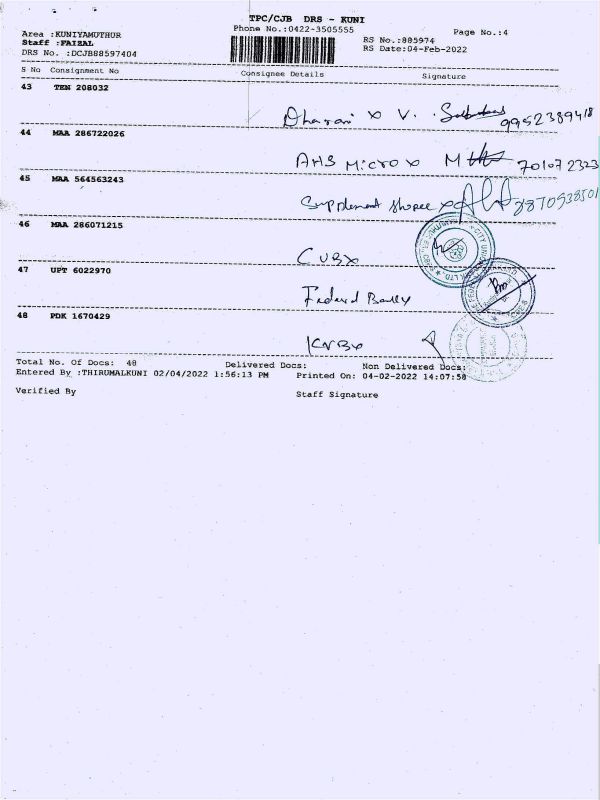 TPC/CJB DRS - KUNI
Area :KUNIYAMUTHUR Phone No.:0422-3505555 Page No.:4
Staff :FAIZAL RS No.:885974
DRS No. :DCJB88597404 RS Date:04-Feb-2022
S No Consignment No Consignee Details Signature
43 TEN 208032
Dharani x V. 9952389418
44 MAA 286722026
AHS Micro x M 701072323
45 MAA 564563243
Supplement shopee x 8870938501
46 MAA 286071215
CUBx
47 UPT 6022970
Federal Bank
48 PDK 1670429
KVBx
Total No. Of Docs: 48 Delivered Docs: Non Delivered Docs:
Entered By :THIRUMALKUNI 02/04/2022 1:56:13 PM Printed On: 04-02-2022 14:07:58
Verified By Staff Signature